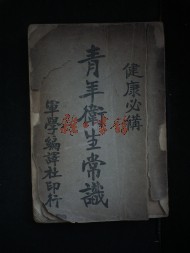 健康必備
青年衛生常識
軍學編譯社印行